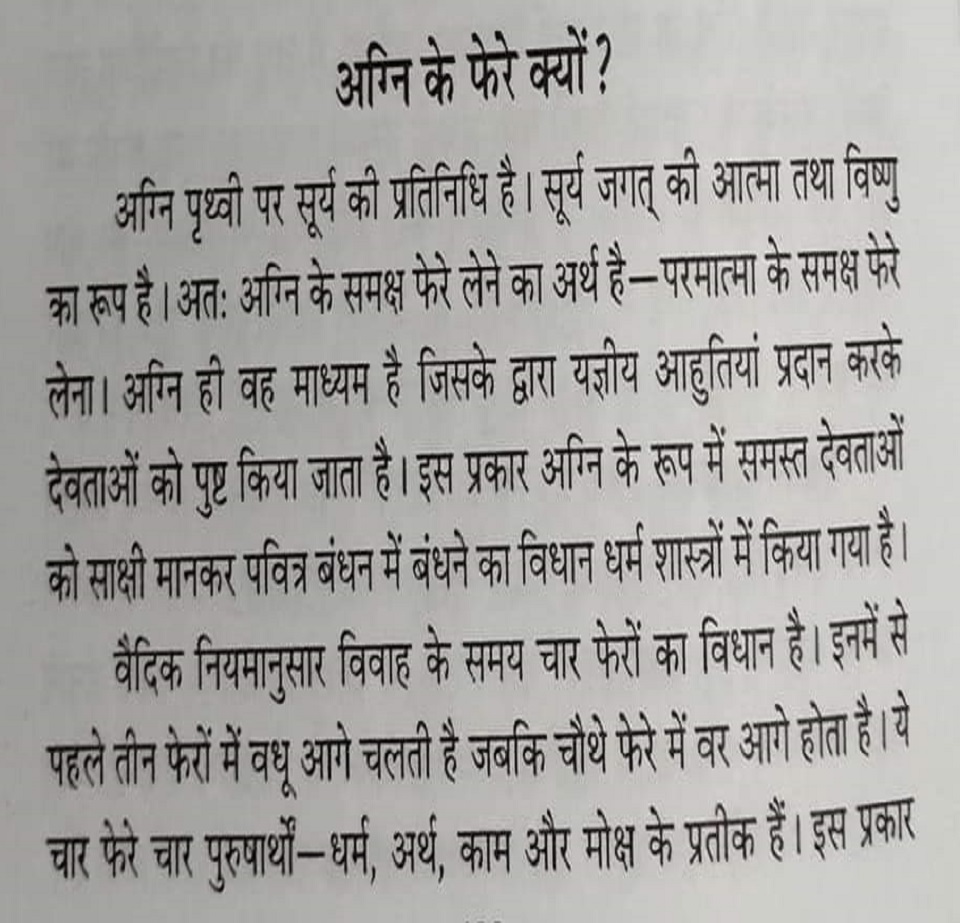 अग्नि के फेरे क्यों?
अग्नि पृथ्वी पर सूर्य की प्रतिनिधि है। सूर्य जगत् की आत्मा तथा विष्णु
का रूप है। अतः अग्नि के समक्ष फेरे लेने का अर्थ है—परमात्मा के समक्ष फेरे
लेना। अग्नि ही वह माध्यम है जिसके द्वारा यज्ञीय आहुतियां प्रदान करके
देवताओं को पुष्ट किया जाता है। इस प्रकार अग्नि के रूप में समस्त देवताओं
को साक्षी मानकर पवित्र बंधन में बंधने का विधान धर्म शास्त्रों में किया गया है।
वैदिक नियमानुसार विवाह के समय चार फेरों का विधान है। इनमें से
पहले तीन फेरों में वधू आगे चलती है जबकि चौथे फेरे में वर आगे होता है। ये
चार फेरे चार पुरुषार्थों—धर्म, अर्थ, काम और मोक्ष के प्रतीक हैं। इस प्रकार